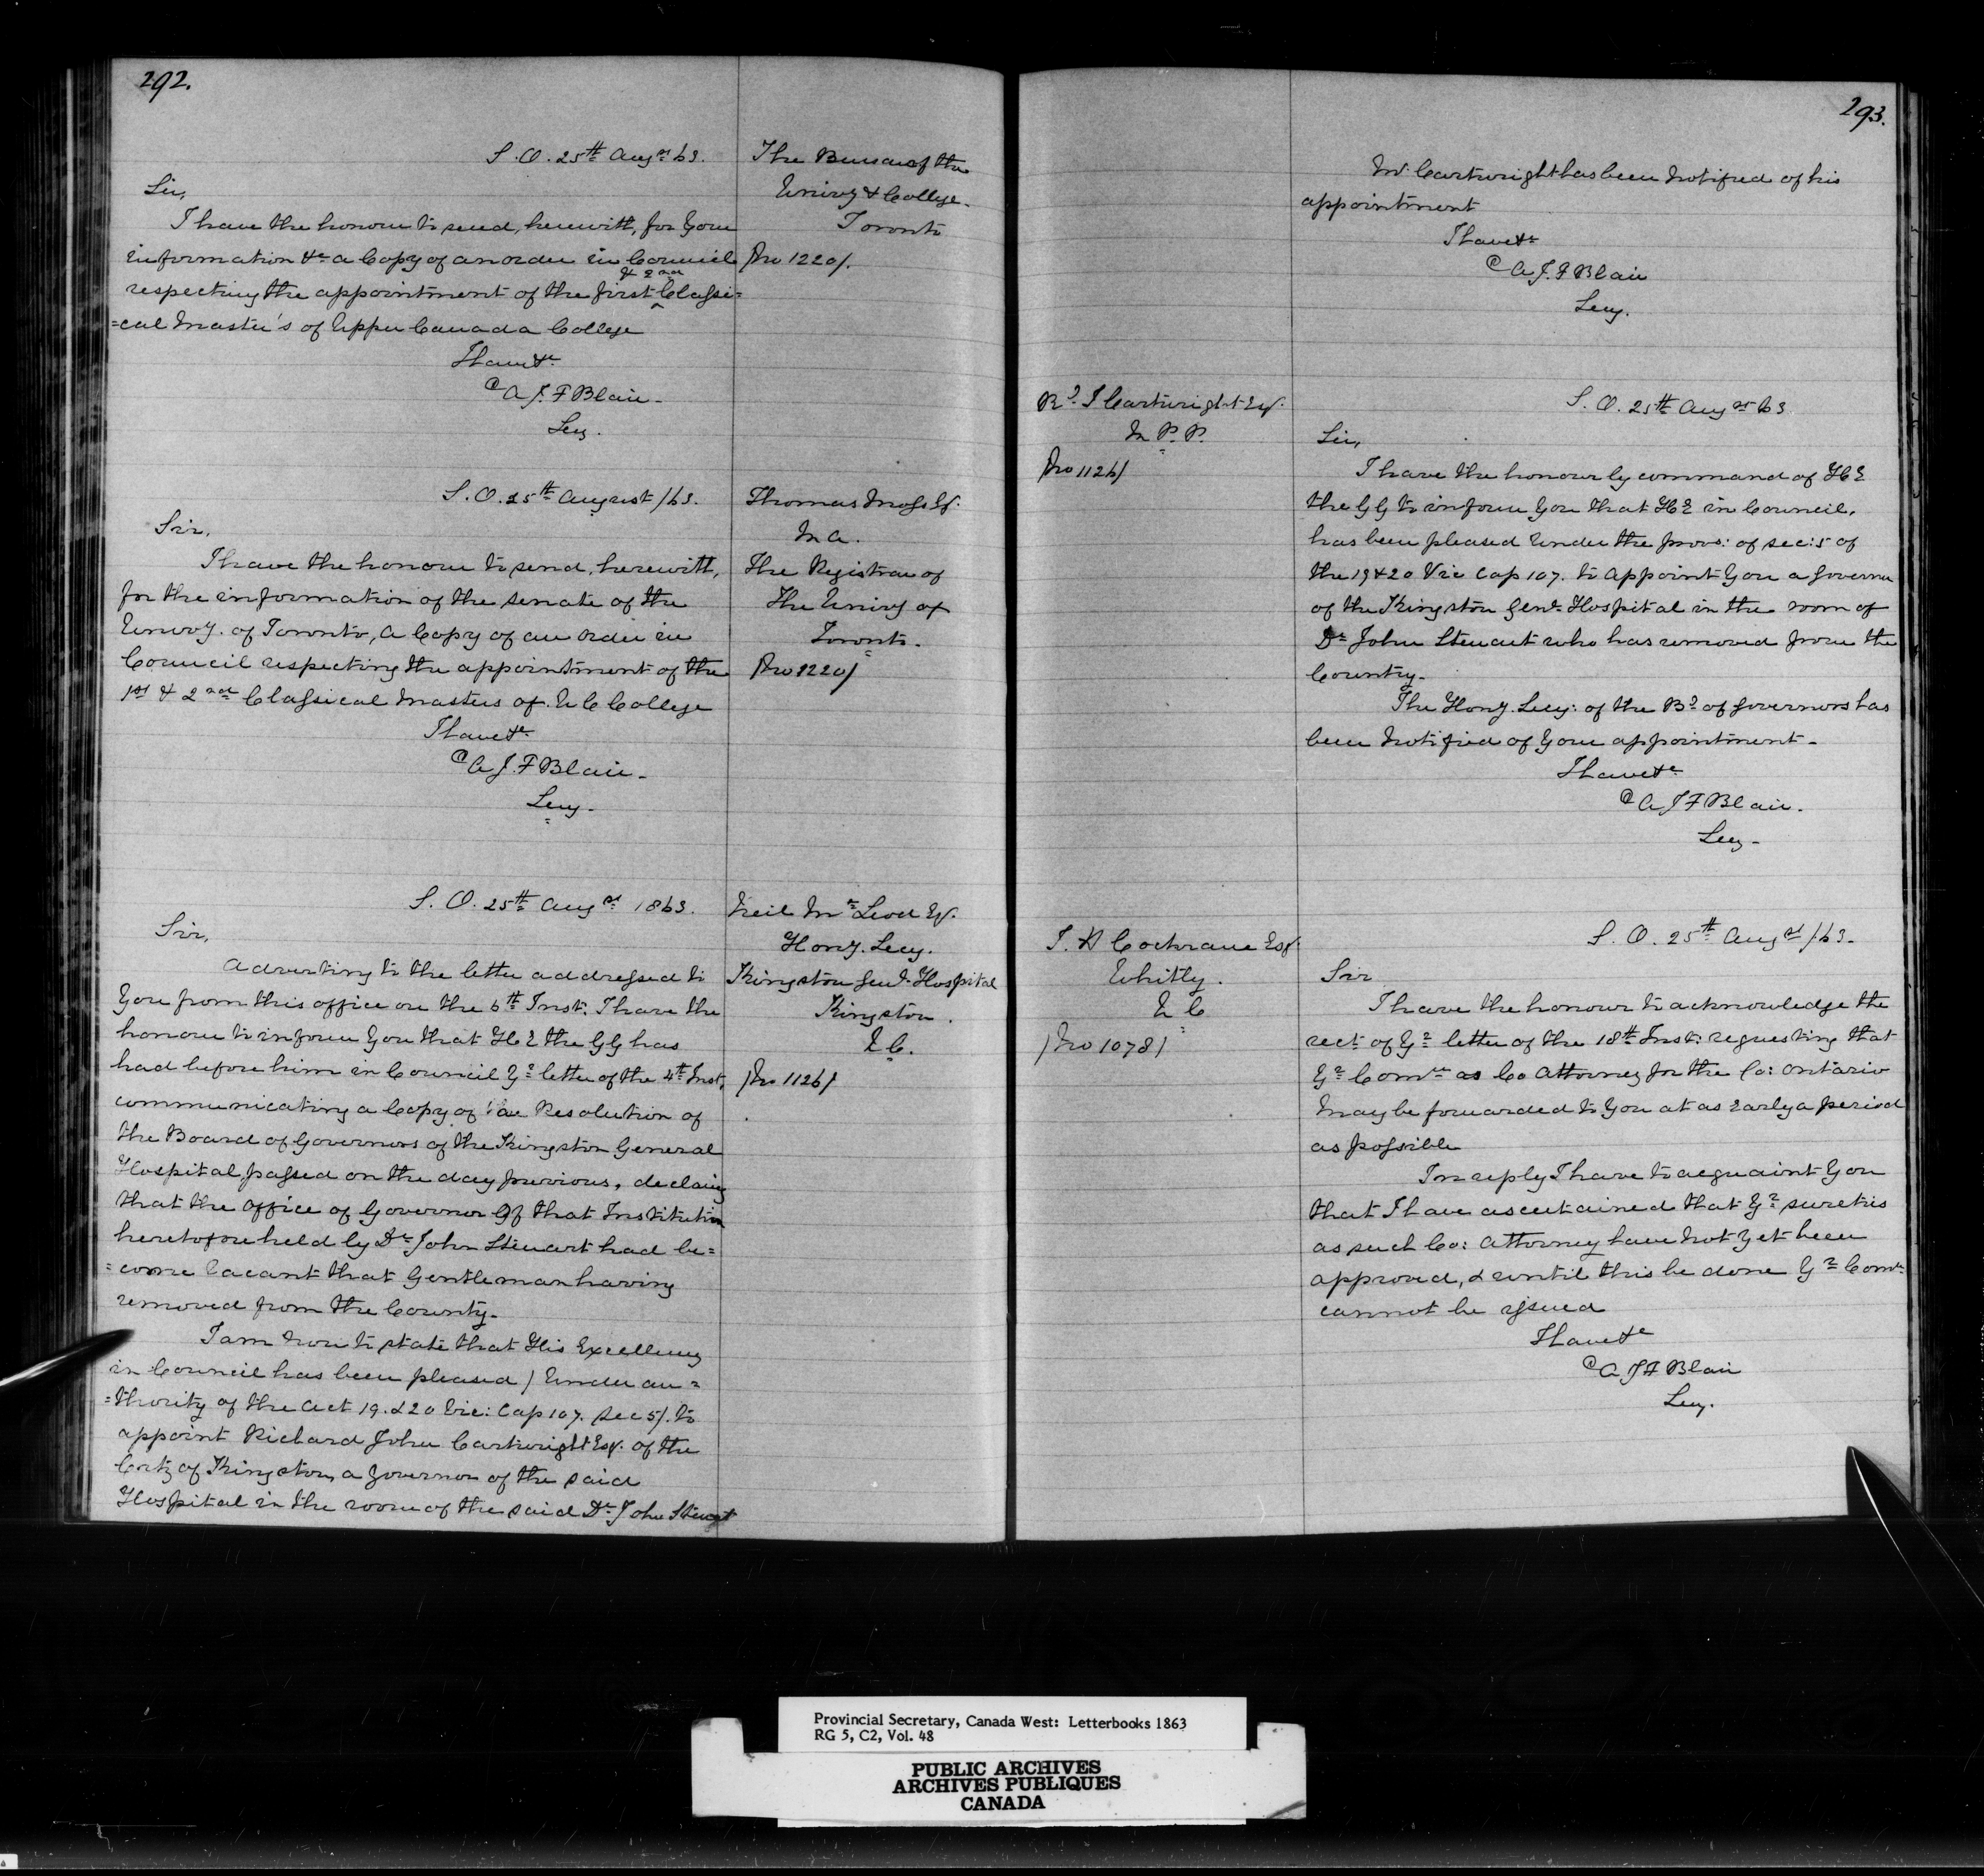 292.
S.O. 25th Augst 63.
The Bursar of the
Univy & College.
Toronto
/No 1220/.
Sir,
I have the honour to send, herewith, for your
information &c a Copy of an order in Council
respecting the appointment of the first & 2nd Classi=
=cal Master's of Upper Canada College
I have &c
A J. F Blair -
Secy.
S.O. 25th August /63.
Thomas Moss Esq.
M A.
The Registrar of
The Univy of
Toronto.
/No 1220/
Sir,
I have the honour to send, herewith,
for the information of the Senate of the
Univy. of Toronto, a Copy of an order in
Council respecting the appointment of the
1st & 2nd Classical Masters of U C College
I have &c
A J. F Blair -
Secy -
S. O. 25th Augst 1863.
Neil Mc Leod Esq.
Hony. Secy.
Kingston Genl Hospital
Kingston.
U C.
/No 1126/
Sir,
Adverting to the letter addressed to
you from this office on the 6th Inst: I have the
honour to inform you that H E the GG has
had before him in Council Yr letter of the 4th Inst,
communicating a Copy of a Resolution of
the Board of Governors of the Kingston General
Hospital, passed on the day previous, declaring
that the office of Governor of that Institution
heretofore held by Dr John Stewart had be=
=come vacant that Gentleman having
removed from the County -
I am now to state that His Excellency
in Council has been pleased / under au=
=thority of the Act 19. & 20 Vic: Cap 107. Sec 5/. to
appoint Richard John Cartwright Esq. of the
City of Kingston, a Governor of the said
Hospital in the room of the said Dr John Stewart
293.
Mr Cartwright has been notified of his
appointment
I have &c
A J. F Blair
Secy.
Rd J Cartwright Esq.
M P. P.
/No 1126/
S. O. 25th Augst 63
Sir,
I have the honour by command of H E
the GG to inform you that H E in Council,
has been pleased under the provs: of sec: 5 of
the 19 & 20 Vic Cap 107. to appoint you a Governor
of the Kingston Genl Hospital in the room of
Dr John Stewart who has removed from the
Country -
The Hony. Secy: of the Bd of Governors has
been notified of your appointment -
I have &c
A J F Blair.
Secy -
S. H Cochrane Esq.
Whitby.
U C
/No 1078/
S. O. 25th Augst /63 -
Sir
I have the honour to acknowledge the
rect of Yr letter of the 18th Inst: requesting that
Yr Comn as Co Attorney for the Co: Ontario
may be forwarded to you at as early a period
as possible
In reply I have to acquaint you
that I have ascertained that Yr sureties
as such Co: Attorney have not yet been
approved, & until this be done Yr Comn
cannot be issued
I have &c
A J F Blair
Secy.
Provincial Secretary, Canada West: Letterbooks 1863
RG 5, C2, Vol. 48
PUBLIC ARCHIVES
ARCHIVES PUBLIQUES
CANADA